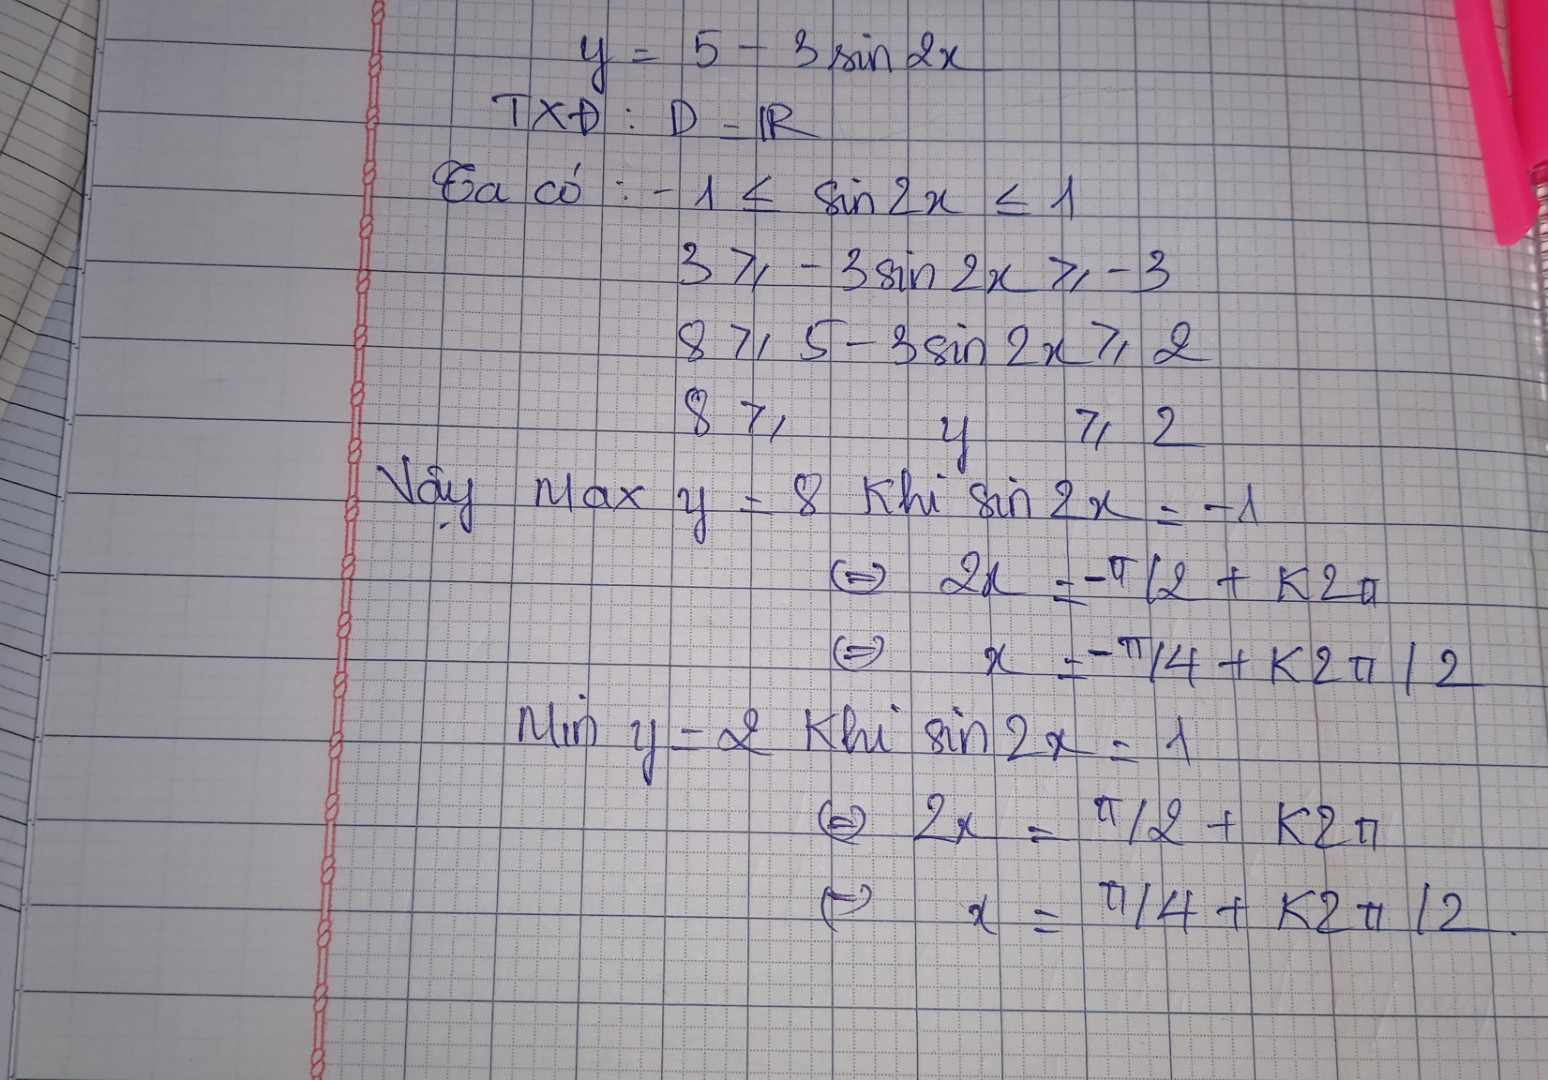 y = 5 - 3 sin 2x
TXĐ : D = ℝ
Ta có : -1 ≤ sin 2x ≤ 1
3 ≥ -3 sin 2x ≥ -3
8 ≥ 5 - 3 sin 2x ≥ 2
8 ≥ y ≥ 2
Vậy Max y = 8 khi sin 2x = -1
⇔ 2x = -π/2 + K2π
⇔ x = -π/4 + K2π/2
Min y = 2 khi sin 2x = 1
⇔ 2x = π/2 + K2π
⇔ x = π/4 + K2π/2.